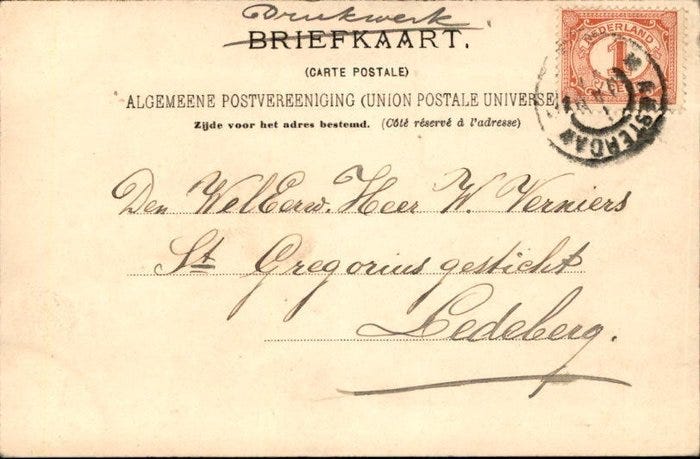 Drukwerk
BRIEFKAART.
(CARTE POSTALE)
ALGEMEENE POSTVEREENIGING (UNION POSTALE UNIVERSE
Zijde voor het adres bestemd. (Côté réservé à l'adresse)
NEDERLAND
1
AMSTERDAM
Den WelEerw. Heer W. Verniers
St Gregorius gesticht
Ledeberg.